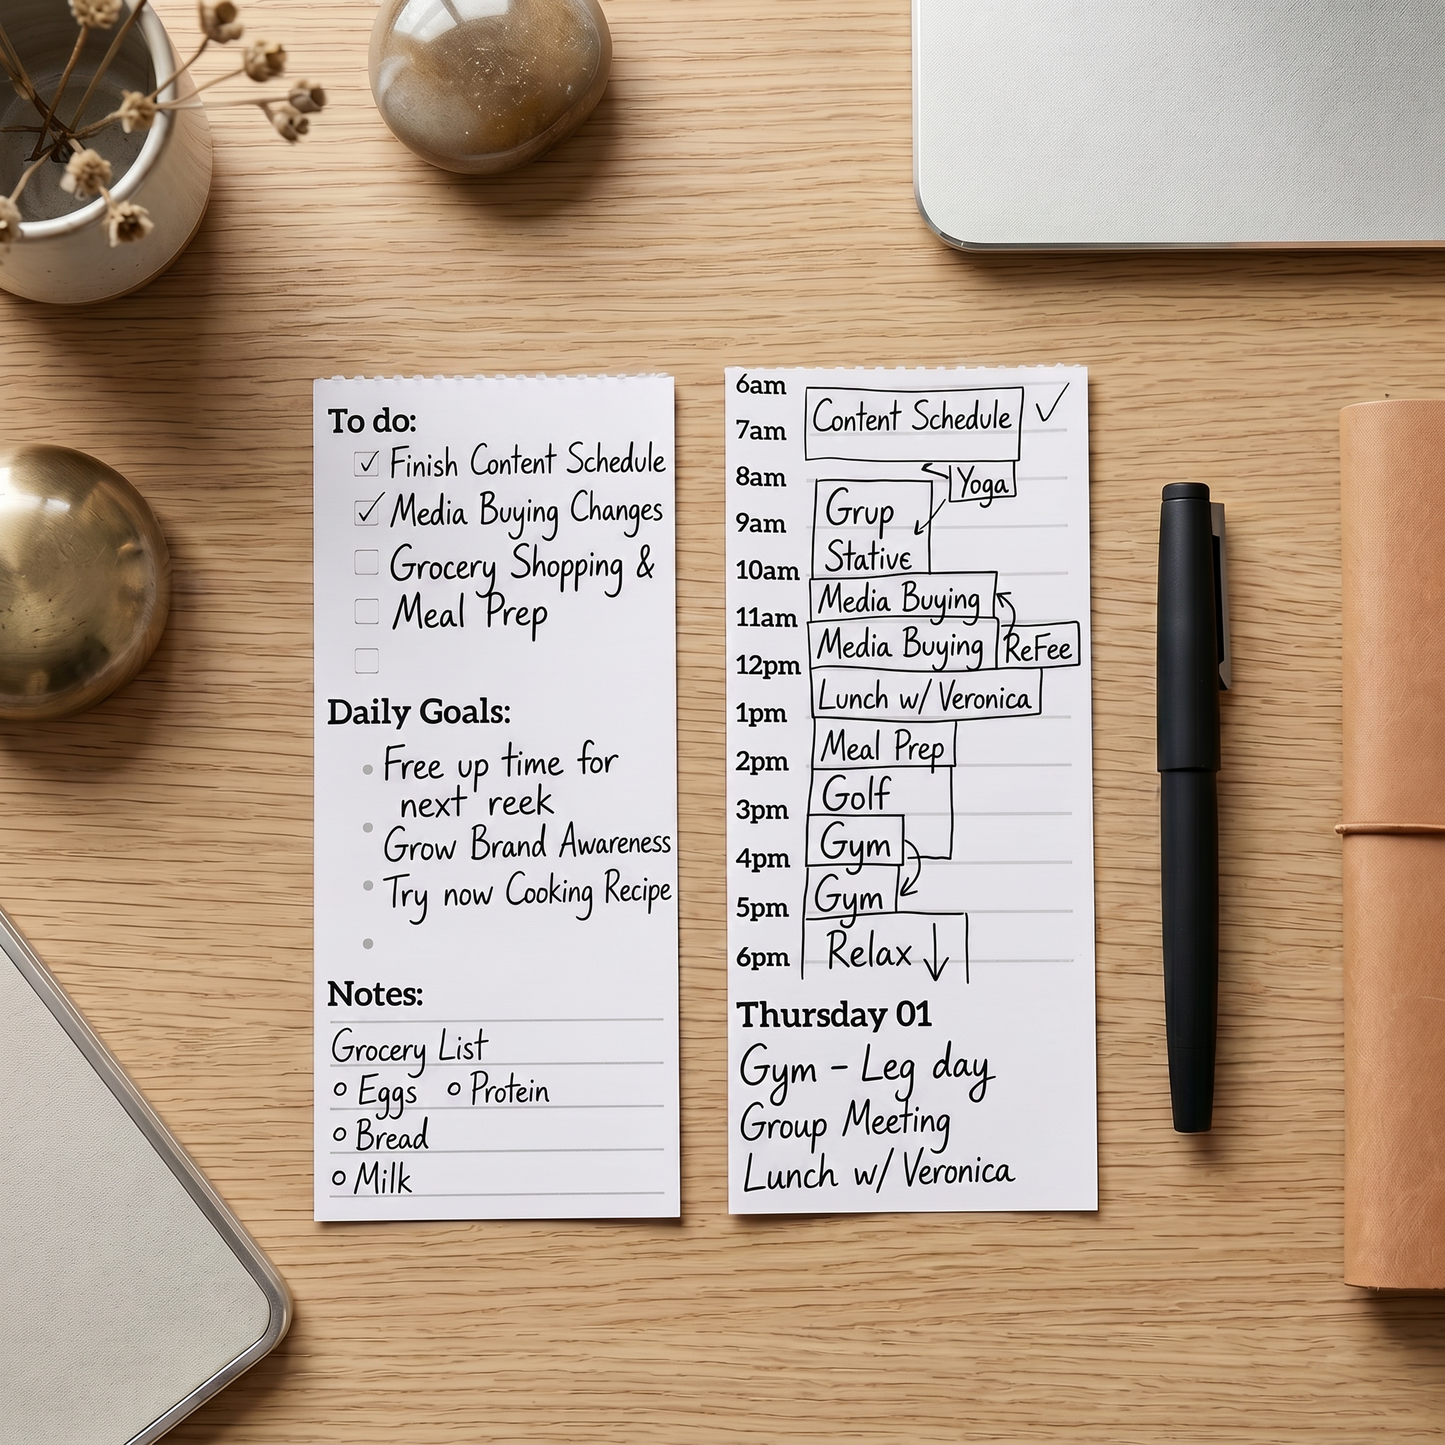 To do:
Finish Content Schedule
Media Buying Changes
Grocery Shopping &
Meal Prep
Daily Goals:
Free up time for
next reek
Grow Brand Awareness
Try now Cooking Recipe
Notes:
Grocery List
Eggs Protein
Bread
Milk
6am
Content Schedule
7am
8am
Yoga
Grup
9am
Stative
10am
Media Buying
11am
Media Buying ReFee
12pm
Lunch w/ Veronica
1pm
Meal Prep
2pm
Golf
3pm
Gym
4pm
Gym
5pm
Relax
6pm
Thursday 01
Gym - Leg day
Group Meeting
Lunch w/ Veronica